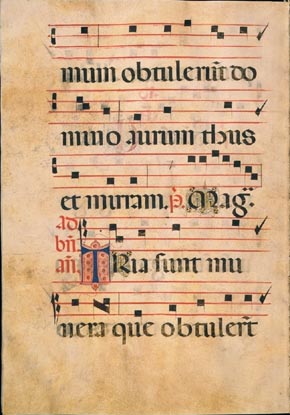 mum obtulerūt do
mino aurum thus
et mirram. p̄. Mag̅.
ad
bn̄
an̄. Tria sunt mu
nera que obtuler̄t